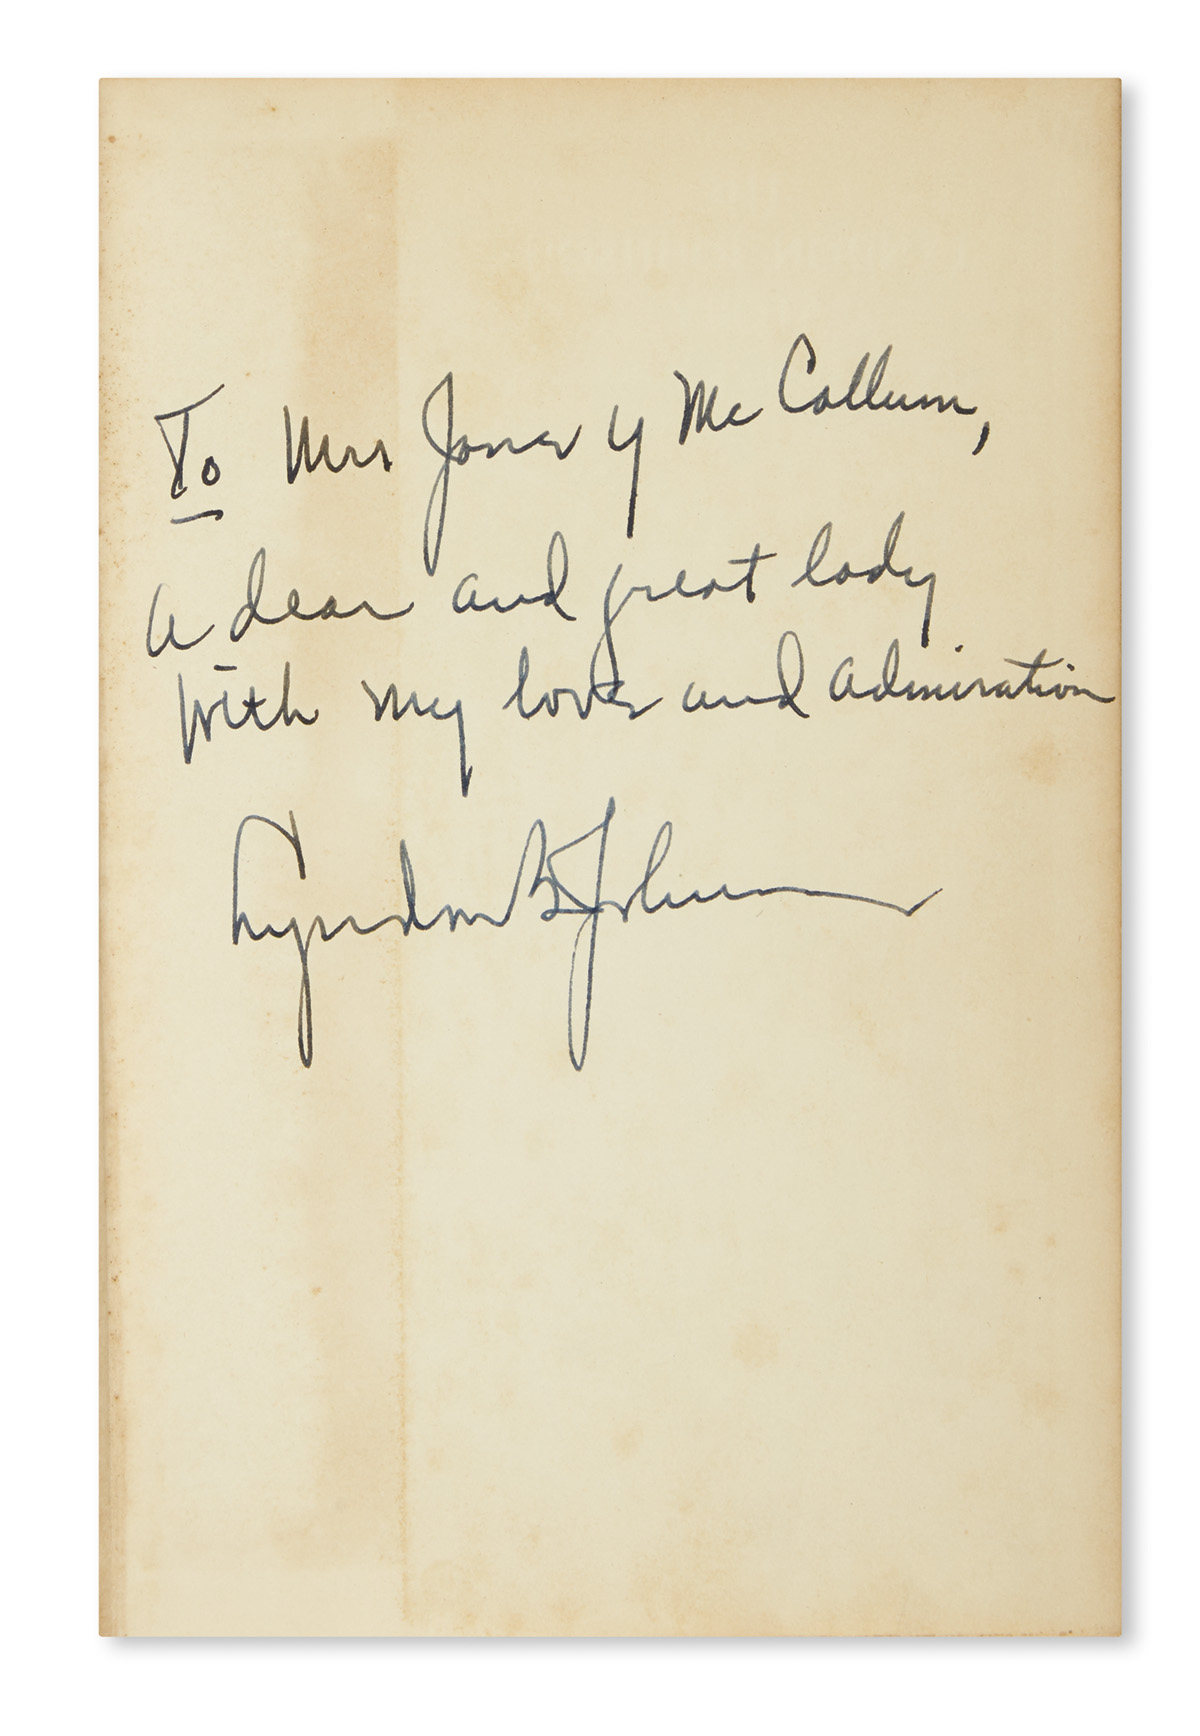 To Mrs James Y McCallum,
a dear and great lady
with my love and admiration
Lyndon B Johnson